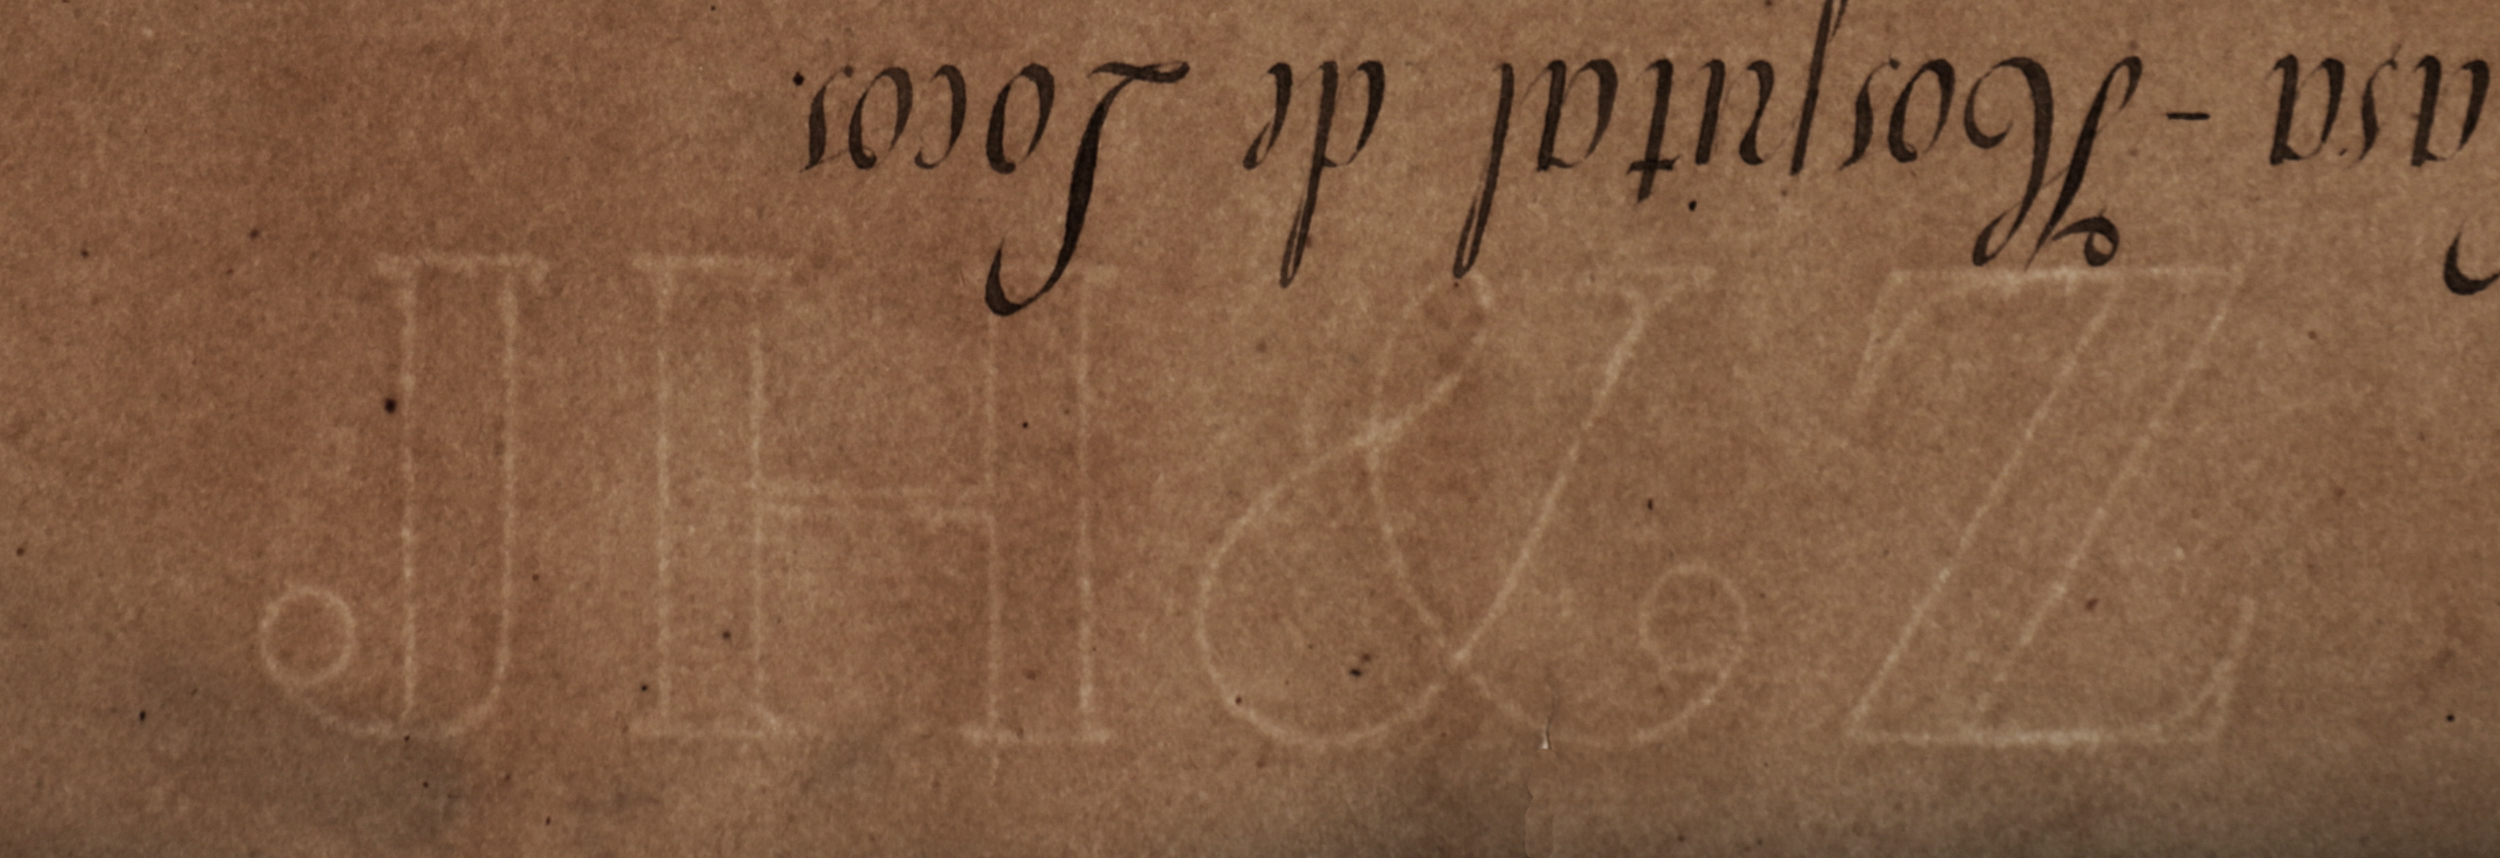 asa - Hospital de Locos.
JH&Z